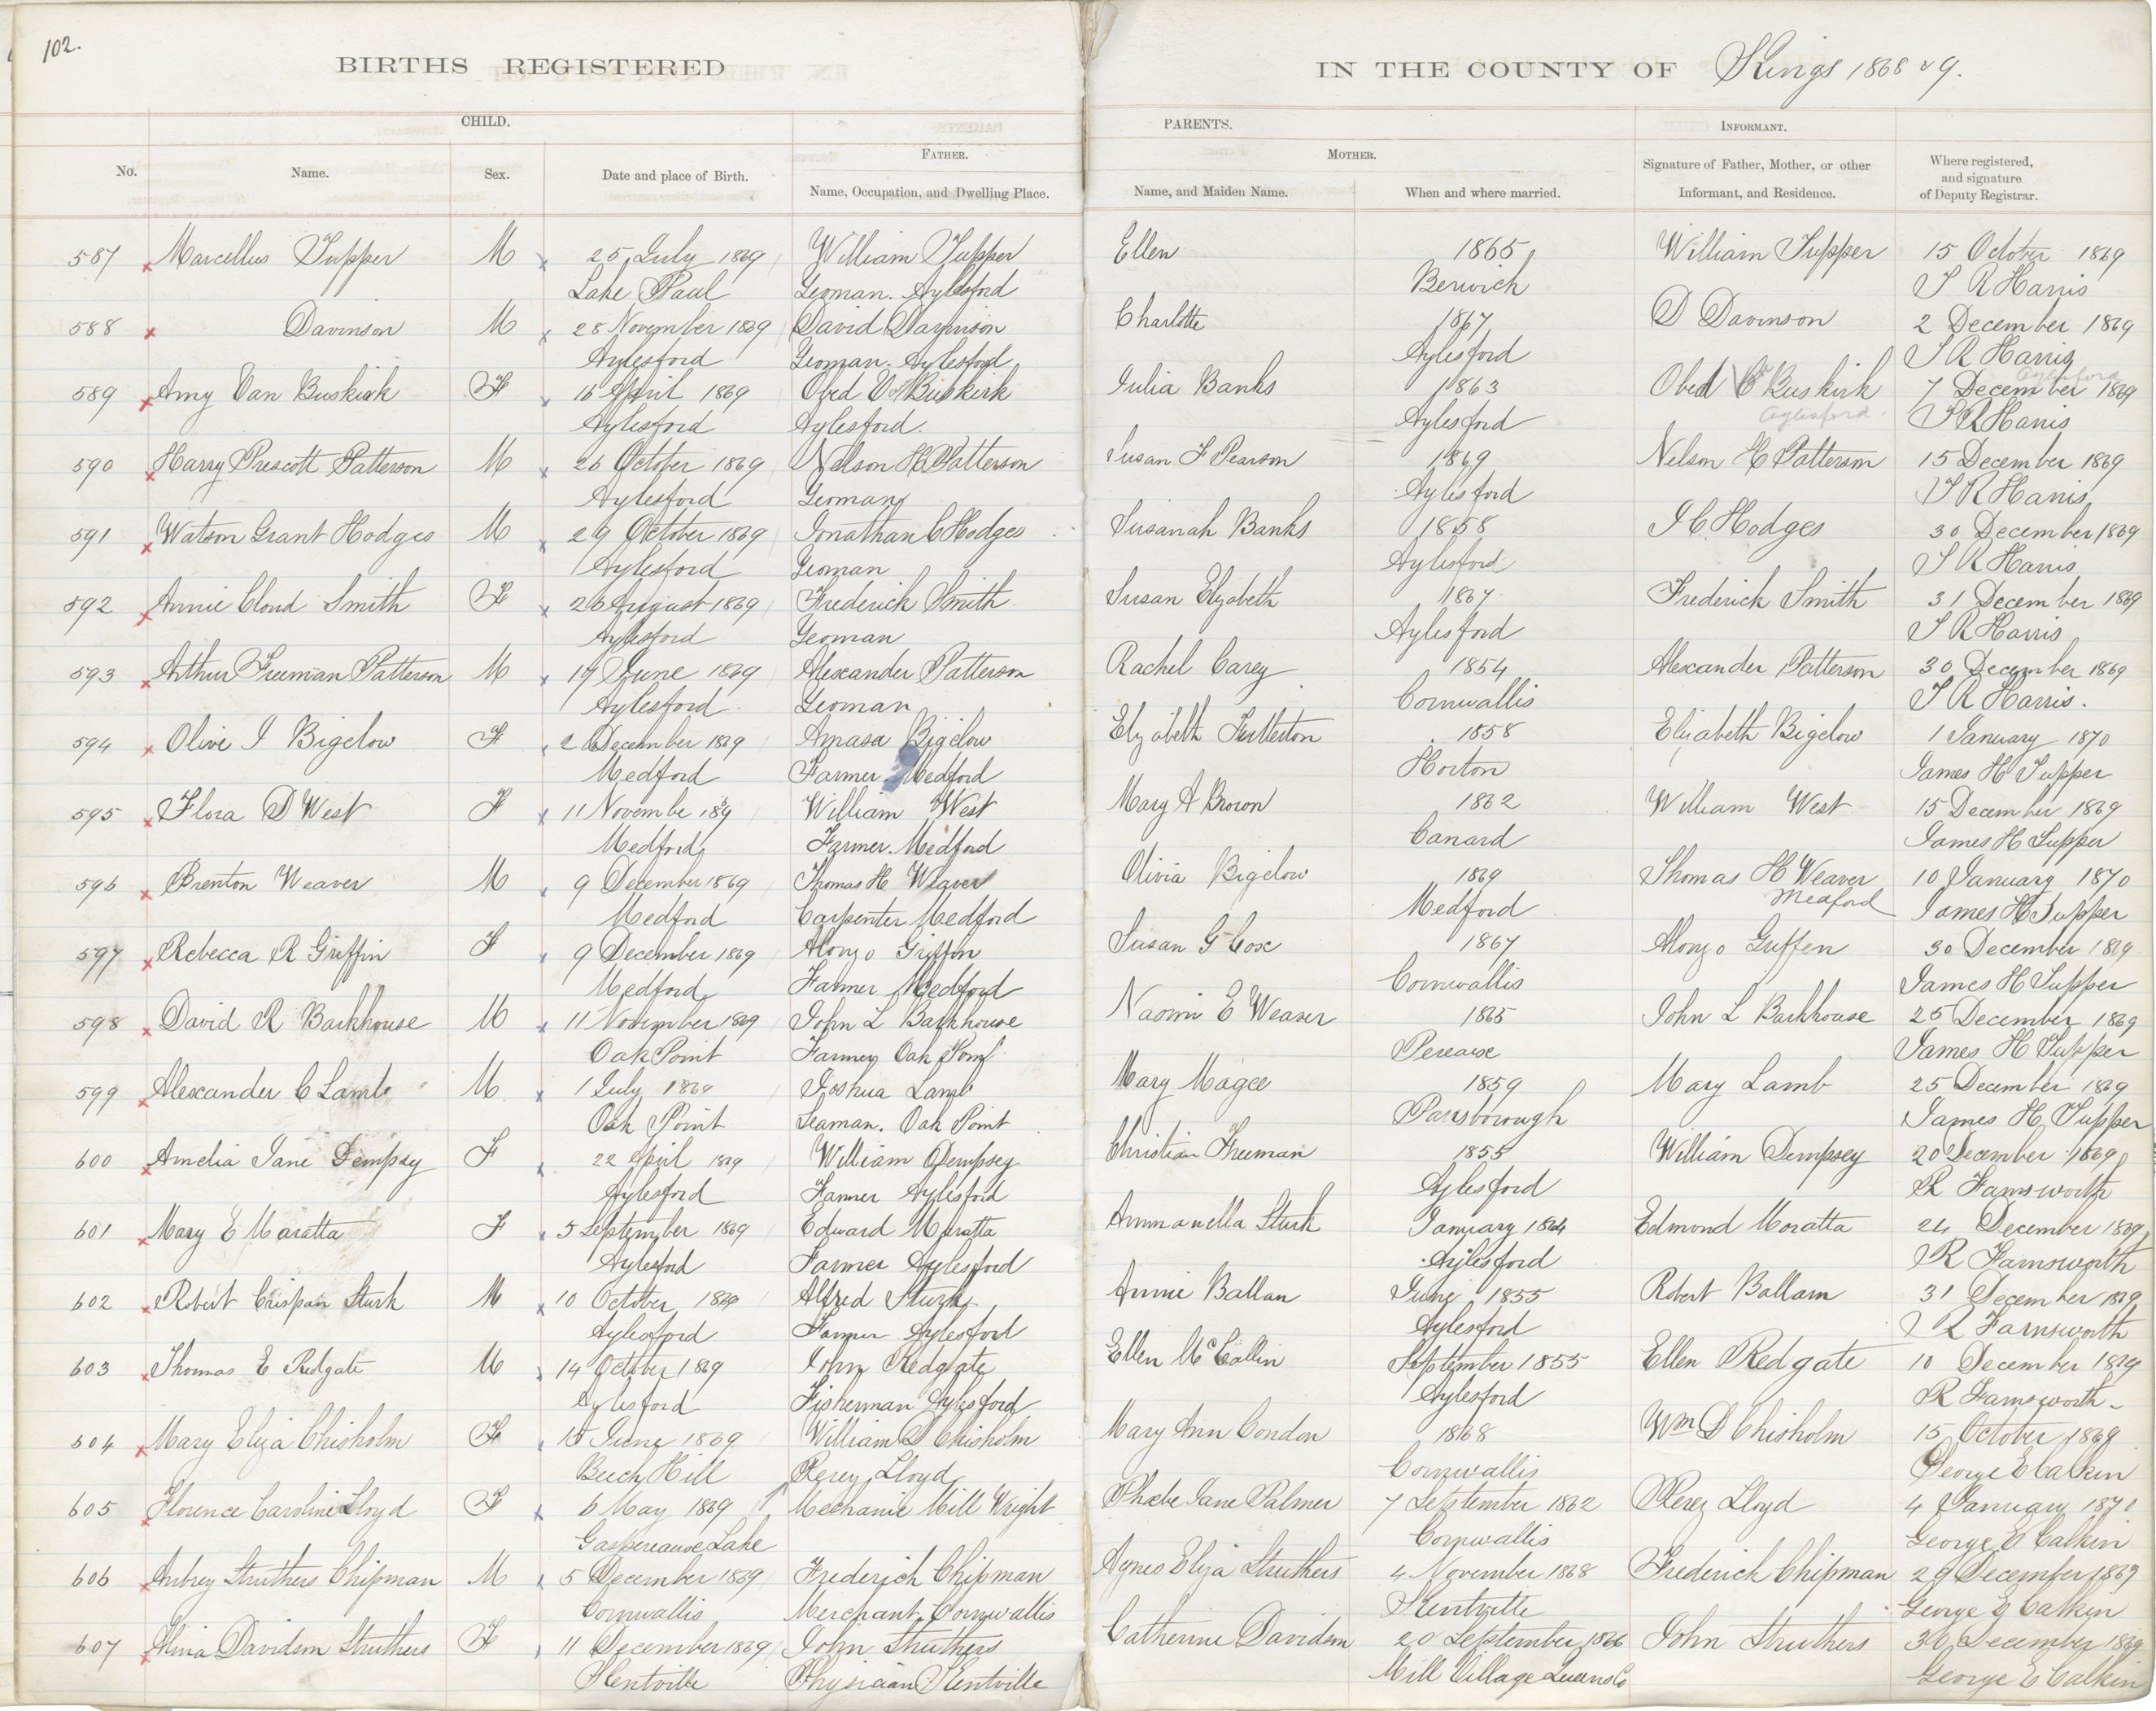 102.
BIRTHS REGISTERED IN THE COUNTY OF Kings 1868 & 9.
CHILD. PARENTS. INFORMANT.
No. Name. Sex. Date and place of Birth. FATHER. Name, Occupation, and Dwelling Place. MOTHER. Name, and Maiden Name. When and where married. Signature of Father, Mother, or other Informant, and Residence. Where registered, and signature of Deputy Registrar.
587 Marcellus Tupper M 25 July 1869 William Tupper Ellen 1865 William Tupper 15 October 1869
Lake Paul Yeoman. Aylesford Berwick T R Harris
588 Davinson M 28 November 1869 David Davinson Charlotte 1867 D Davinson 2 December 1869
Aylesford Yeoman. Aylesford Aylesford T R Harris
589 Amy Van Buskirk F 16 April 1869 Obed Van Buskirk Julia Banks 1863 Obed Van Buskirk 7 December 1869
Aylesford Aylesford. Aylesford Aylesford. T R Harris
590 Harry Prescott Patterson M 26 October 1869 Nelson H Patterson Susan F Pearson 1869 Nelson H Patterson 15 December 1869
Aylesford Yeoman Aylesford T R Harris
591 Watson Grant Hodges M 29 October 1869 Jonathan C Hodges Susanah Banks 1858 J C Hodges 30 December 1869
Aylesford Yeoman Aylesford T R Harris
592 Annie Cloud Smith F 26 August 1869 Frederick Smith Susan Elizabeth 1867 Frederick Smith 31 December 1869
Aylesford Yeoman Aylesford T R Harris
593 Arthur Freeman Patterson M 19 June 1869 Alexander Patterson Rachel Carey 1854 Alexander Patterson 30 December 1869
Aylesford Yeoman Cornwallis T R Harris.
594 Olive I Bigelow F 2 December 1869 Amasa Bigelow Elizabeth Fullerton 1858 Elizabeth Bigelow 1 January 1870
Medford Farmer Medford Horton James H Tupper
595 Flora D West F 11 Novembe 1869 William West Mary A Brown 1862 William West 15 December 1869
Medford Farmer. Medford Canard James H Tupper
596 Brenton Weaver M 9 December 1869 Thomas H Weaver Olivia Bigelow 1869 Thomas H Weaver 10 January 1870
Medford Carpenter Medford Medford Medford James H Tupper
597 Rebecca R Griffin F 9 December 1869 Alonzo Griffin Susan G Cox 1867 Alonzo Guffen 30 December 1869
Medford Farmer Medford Cornwallis James H Tupper
598 David R Barkhouse M 11 November 1869 John L Barkhouse Naomi E Weaver 1865 John L Barkhouse 25 December 1869
Oak Point Farmer Oak Point Pereaux James H Tupper
599 Alexander C Lamb M 1 July 1869 Joshua Lamb Mary Magee 1859 Mary Lamb 25 December 1869
Oak Point Seaman. Oak Point Parrsborough James H Tupper
600 Amelia Jane Dempsey F 22 April 1869 William Dempsey Christian Freeman 1855 William Dempsey 20 December 1869
Aylesford Farmer Aylesford Aylesford R Farnsworth
601 Mary E Maratta F 5 September 1869 Edward Maratta Ammanella Sturk January 1864 Edmond Moratta 24 December 1869
Aylesford Farmer Aylesford Aylesford R Farnsworth
602 Robert Crispan Sturk M 10 October 1869 Alfred Sturk Annie Ballan June 1855 Robert Ballam 31 December 1869
Aylesford Farmer Aylesford Aylesford R Farnsworth
603 Thomas E Redgate M 14 October 1869 John Redgate Ellen McCallin September 1855 Ellen Redgate 10 December 1869
Aylesford Fisherman Aylesford Aylesford R Farnsworth
604 Mary Eliza Chisholm F 15 June 1869 William D Chisholm Mary Ann Condon 1868 Wm D Chisholm 15 October 1869
Beech Hill Perey Lloyd Cornwallis George E Calkin
605 Florence Caroline Lloyd F 6 May 1869 Mechanic Mill Wright Phœbe Jane Palmer 7 September 1862 Perez Lloyd 4 January 1870
Gaspereaux Lake Cornwallis George E Calkin
606 Aubrey Struthers Chipman M 5 December 1869 Frederick Chipman Agnes Eliza Struthers 4 November 1868 Frederick Chipman 29 December 1869
Cornwallis Merchant Cornwallis Kentville George E Calkin
607 Mina Davidson Struthers F 11 December 1869 John Struthers Catherine Davidson 20 September 1866 John Struthers 30 December 1869
Kentville Physician Kentville Mill Village Queens Co George E Calkin